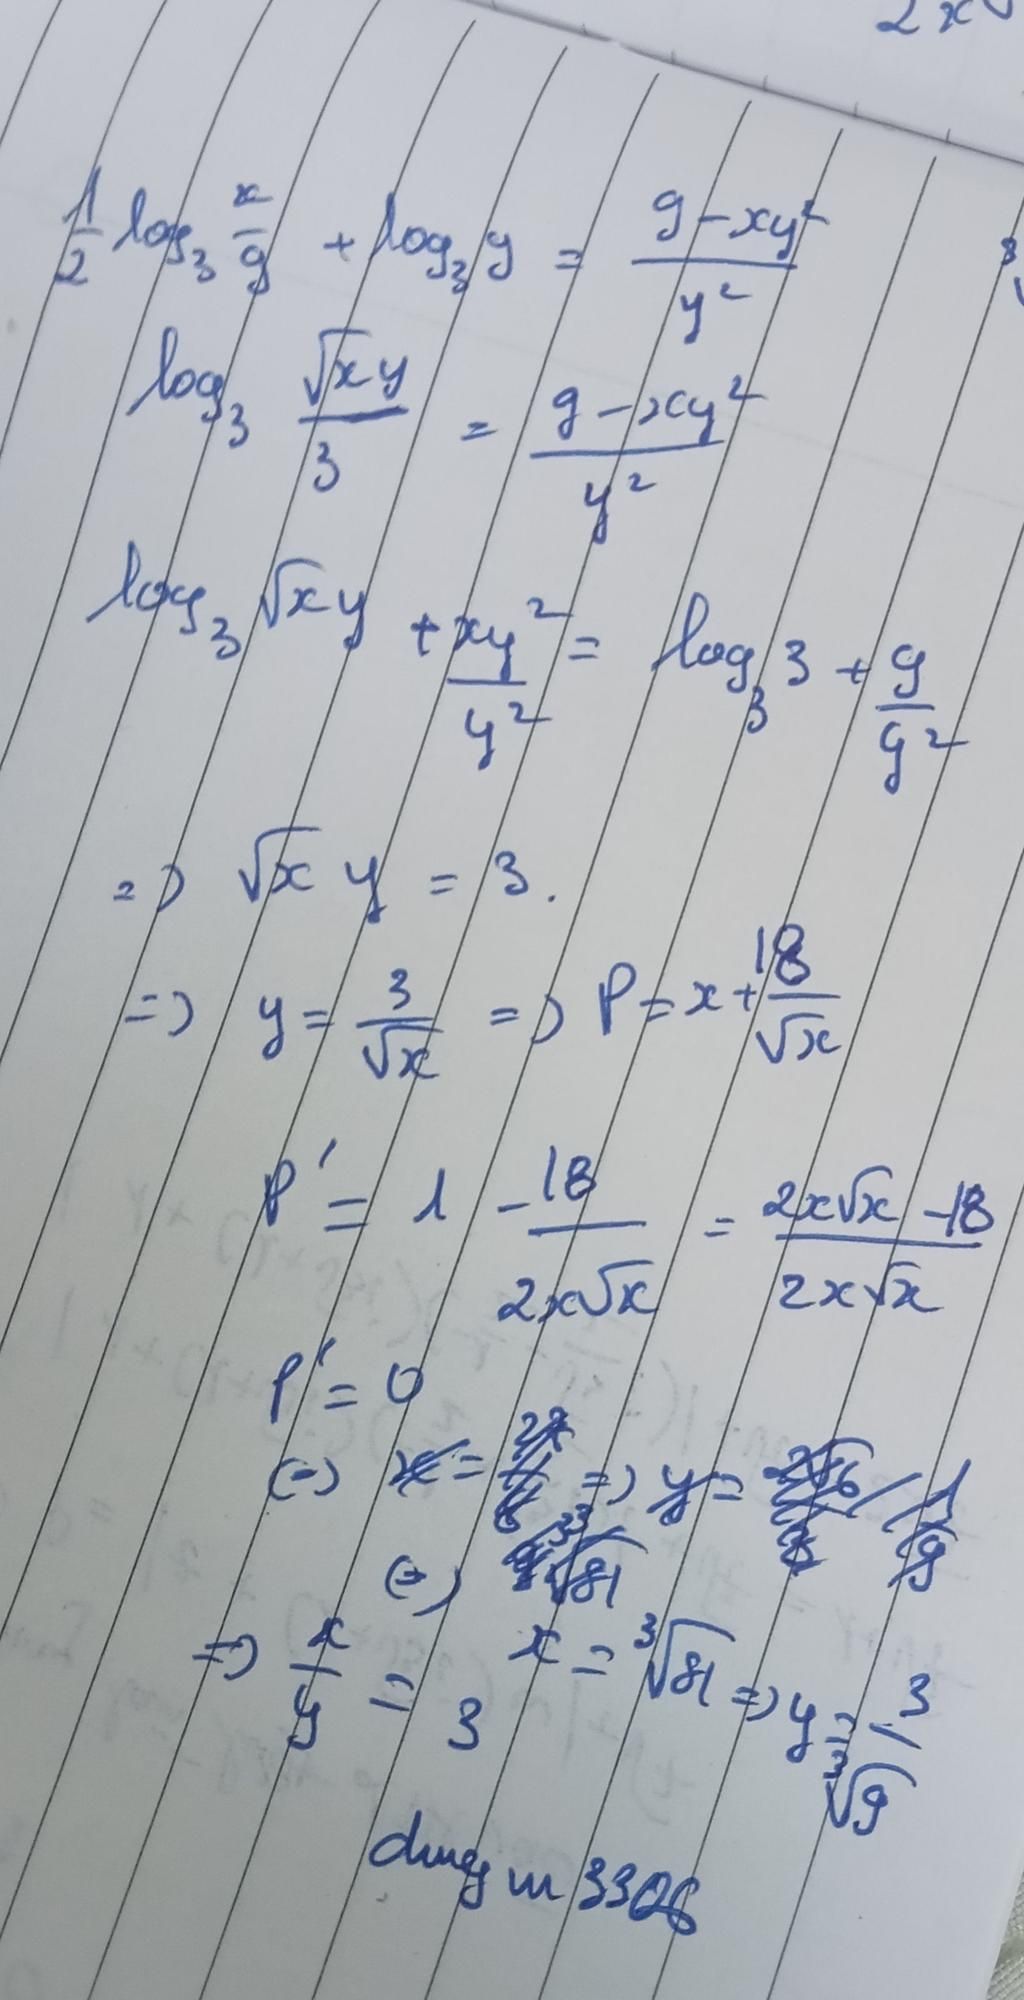 2x√
1/2 log₃ x/9 + log₃ y = (9 - xy²)/y²
log₃ (√x y)/3 = (9 - xy²)/y²
log₃ √x y + xy²/y² = log₃ 3 + 9/y²
=> √x y = 3.
=> y = 3/√x => P = x + 18/√x
P' = 1 - 18/(2x√x) = (2x√x - 18)/(2x√x)
P' = 0
(=) x = => y =
(=) ∛81
=> x/y = 3 x = ∛81 => y = 3/∛9